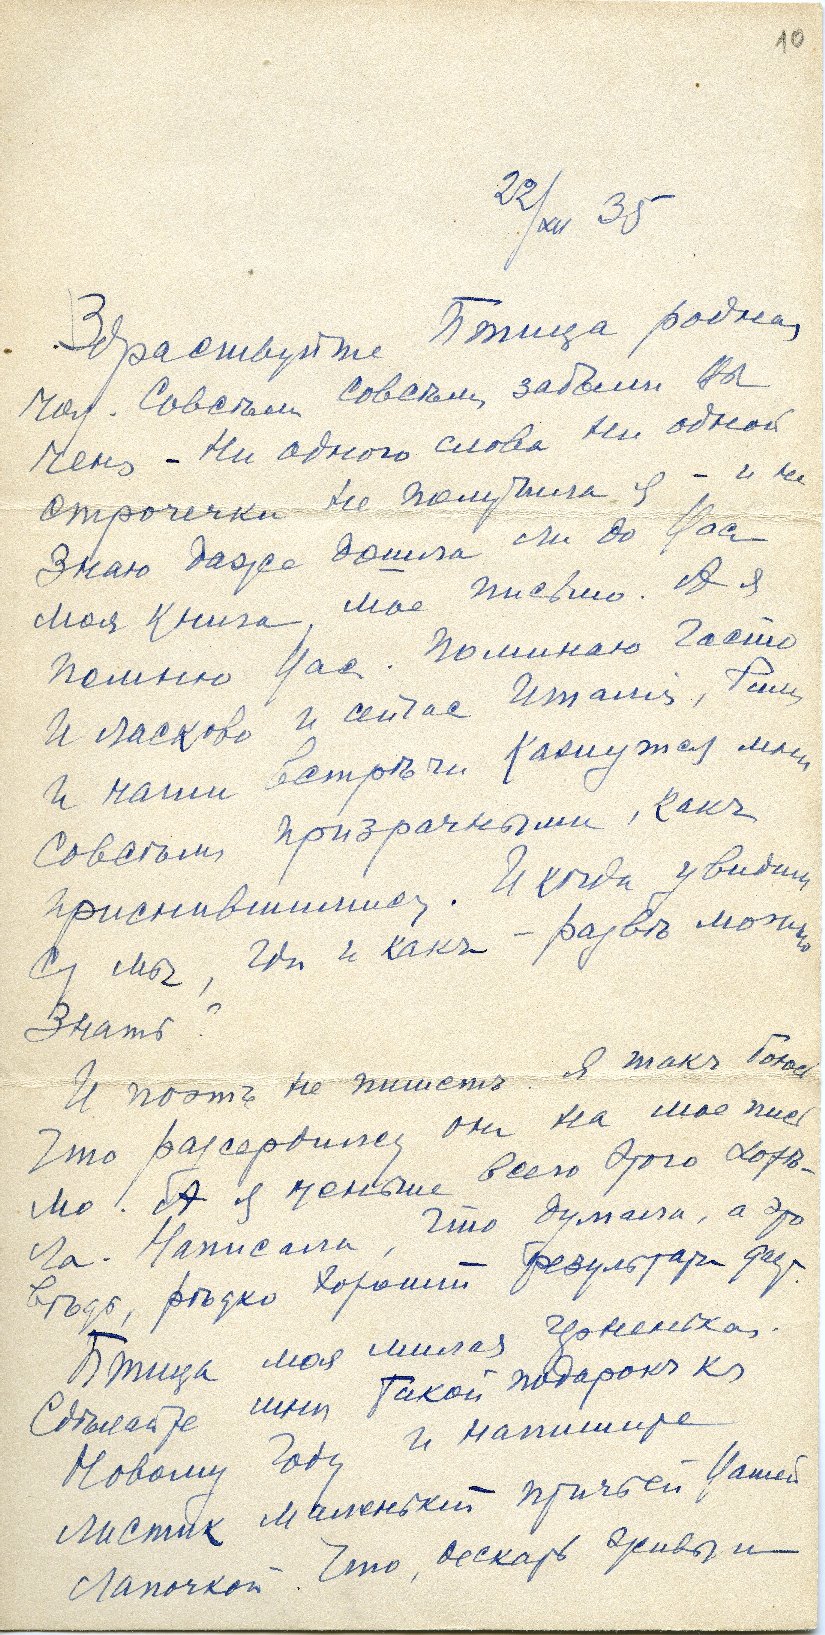 10
22/XII 35
Здраствуйте Птица родная
моя. Совсѣмъ совсѣмъ забыли Вы
меня – Ни одного слова ни одной
строчечки не получила я – и не
знаю даже дошла ли до Васъ
моя книга, мое письмо. А я
помню Васъ. Поминаю часто
и ласково и сейчас Италія, Римъ
и наши встрѣчи кажутся мнѣ
совсѣмъ призрачными, какъ
приснившимися. И когда увидим
ся мы, гдѣ и какъ – развѣ можно
знать?
И поэтъ не пишетъ. Я такъ боюсь
что разсердился онъ на мое пись
мо. А я меньше всего этого хотѣ–
ла. Написала, что думала, а это
вѣдь, рѣдко хорошій результатъ даетъ.
Птица моя милая
Сдѣлайте мнѣ такой подарокъ къ
Новому Году и напишите
листик маленькій птичьей Вашей
лапочкой. Что, дескать живы и